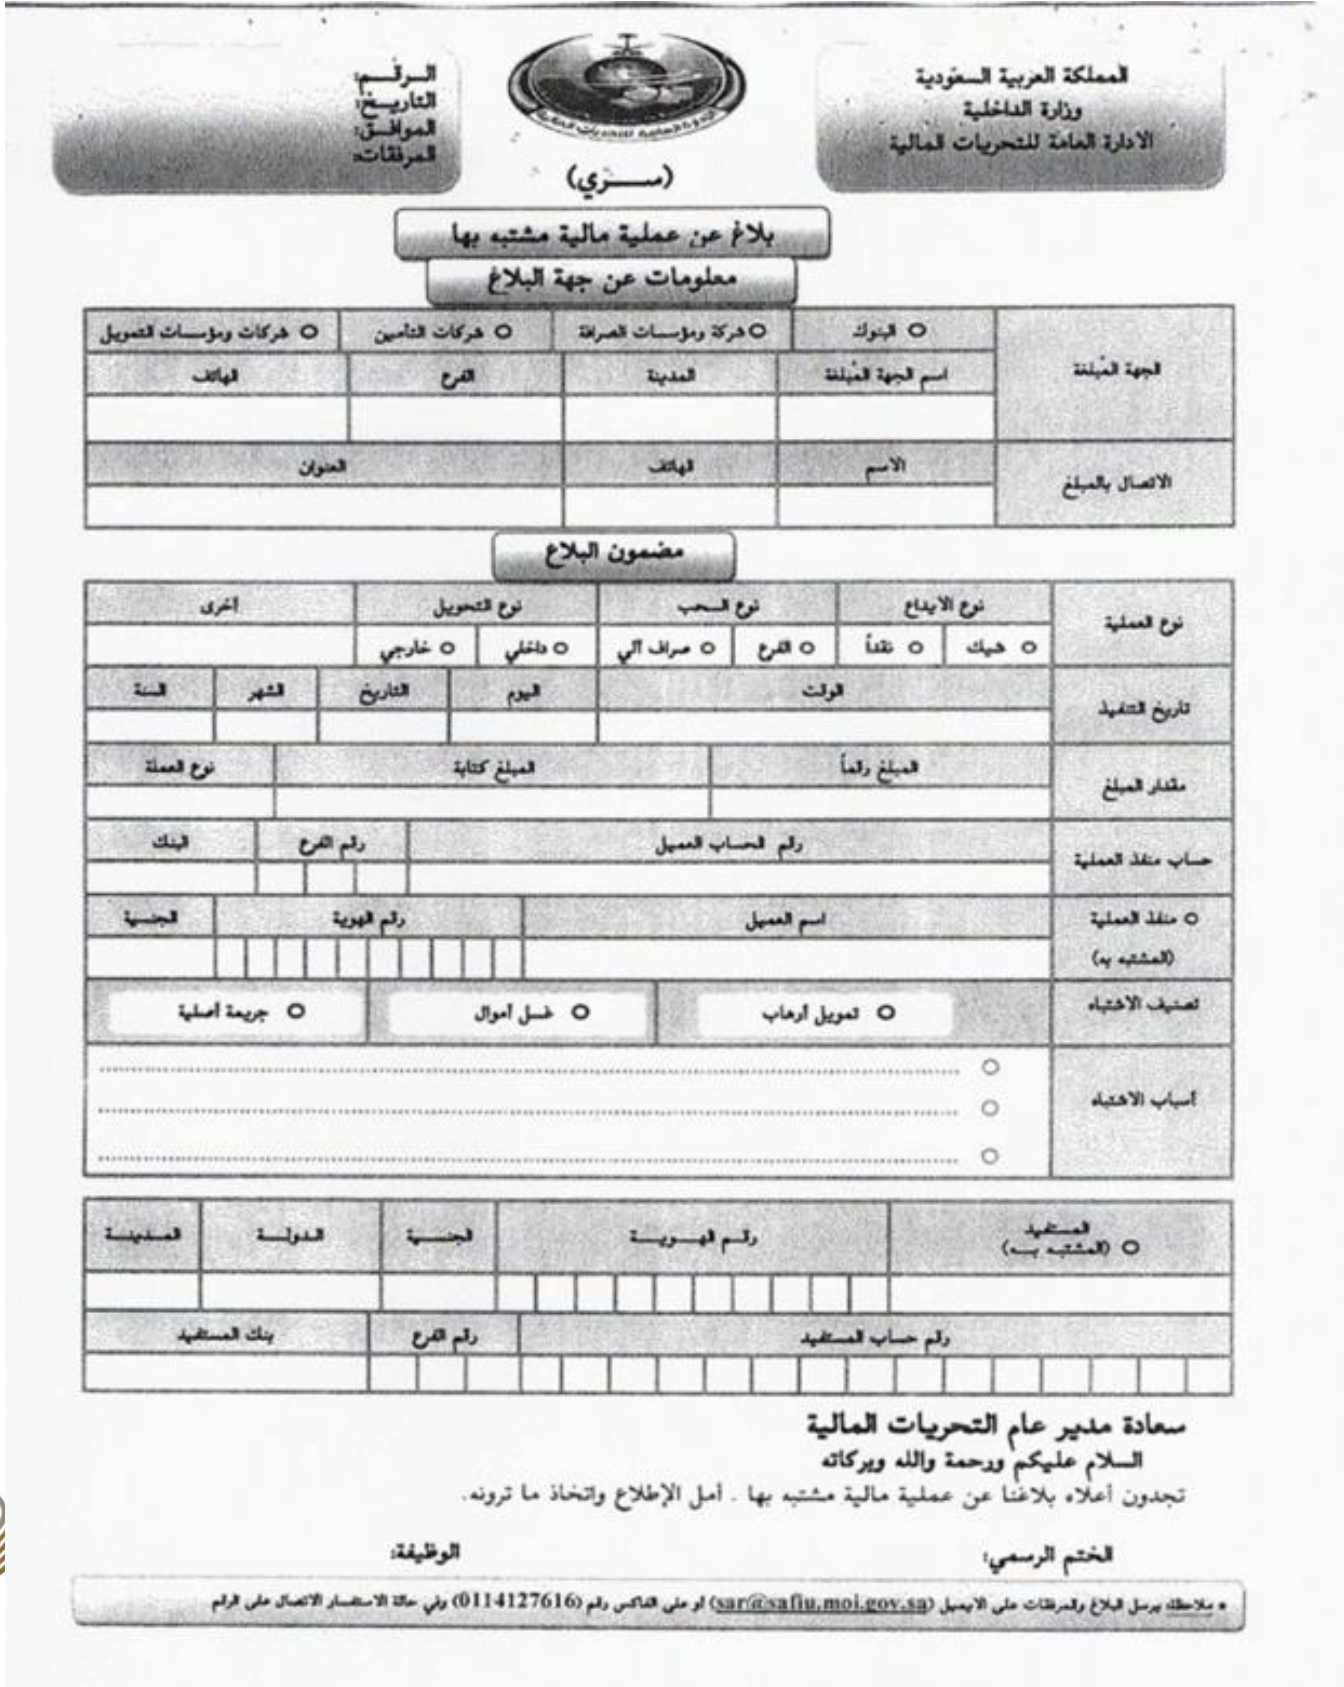 المملكة العربية السعودية
وزارة الداخلية
الادارة العامة للتحريات المالية
الـرقــم:
التاريـخ:
الموافـق:
المرفقات:
(ســري)
بلاغ عن عملية مالية مشتبه بها
معلومات عن جهة البلاغ
الجهة المُبلغة
البنوك
شركة ومؤسسات الصرافة
شركات التأمين
شركات ومؤسسات التمويل
اسم الجهة المُبلغة
المدينة
الفرع
الهاتف
الاتصال بالمبلغ
الاسم
الهاتف
العنوان
مضمون البلاغ
نوع العملية
نوع الأيداع
نوع السحب
نوع التحويل
أخرى
شيك
نقداً
الفرع
صراف آلي
داخلي
خارجي
تاريخ التنفيذ
الوقت
اليوم
التاريخ
الشهر
السنة
مقدار المبلغ
المبلغ رقماً
المبلغ كتابة
نوع العملة
حساب منفذ العملية
رقم الحساب العميل
رقم الفرع
البنك
منفذ العملية
(المشتبه به)
اسم العميل
رقم الهوية
الجنسية
تصنيف الاشتباه
تمويل أرهاب
غسل أموال
جريمة أصلية
أسباب الاشتباه
المستفيد
(المشتبه بـه)
رقـم الهـويـة
الجنسـية
الـدولـة
المـدينـة
رقم حساب المستفيد
رقم الفرع
بنك المستفيد
سعادة مدير عام التحريات المالية
السلام عليكم ورحمة والله وبركاته
تجدون أعلاه بلاغنا عن عملية مالية مشتبه بها . أمل الإطلاع واتخاذ ما ترونه.
الختم الرسمي:
الوظيفة:
• ملاحظة يرسل البلاغ والمرفقات على الايميل (sar@safiu.moi.gov.sa) أو على الفاكس رقم (0114127616) وفي حالة الاستفسار الاتصال على الرقم